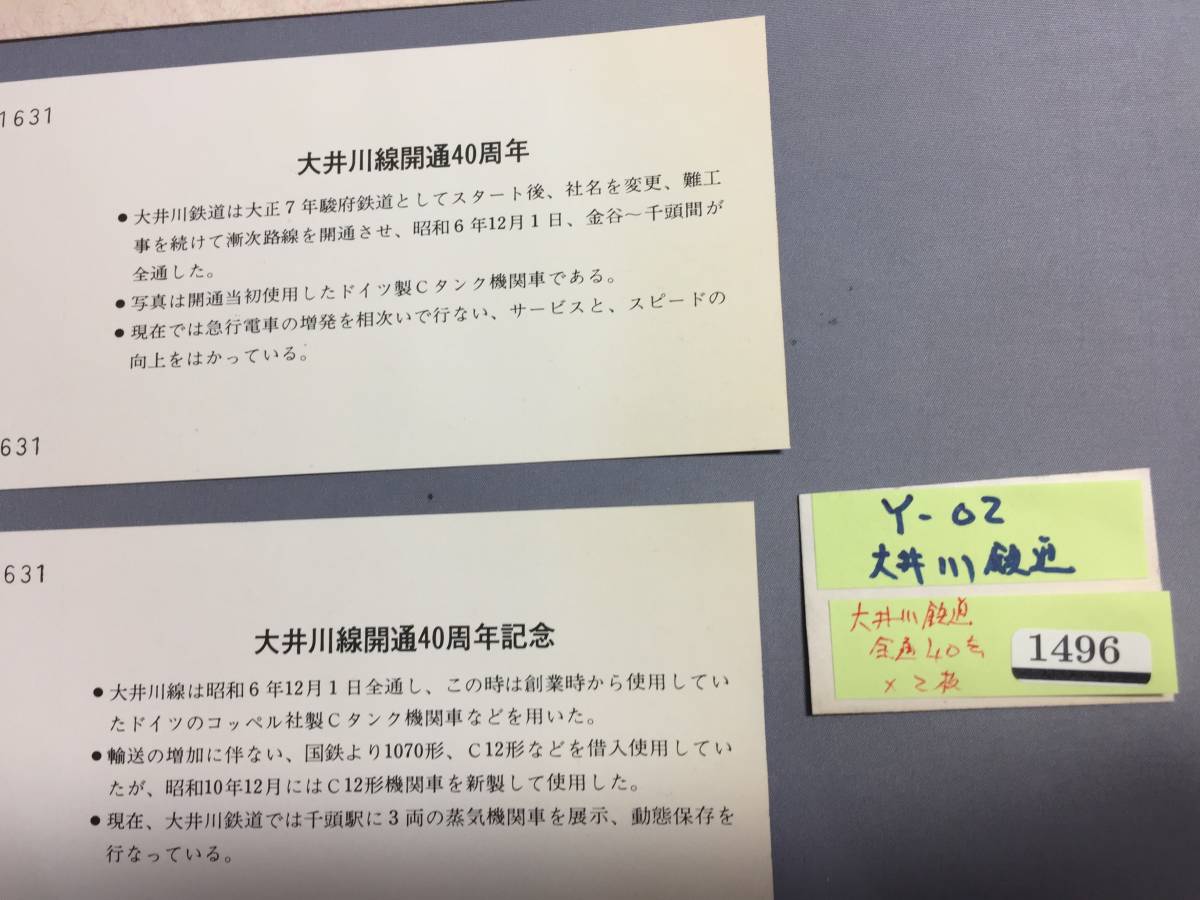 1631
大井川線開通40周年
●大井川鉄道は大正７年駿府鉄道としてスタート後、社名を変更、難工
事を続けて漸次路線を開通させ、昭和６年12月１日、金谷〜千頭間が
全通した。
●写真は開通当初使用したドイツ製Ｃタンク機関車である。
●現在では急行電車の増発を相次いで行ない、サービスと、スピードの
向上をはかっている。
631
631
大井川線開通40周年記念
●大井川線は昭和６年12月１日全通し、この時は創業時から使用してい
たドイツのコッペル社製Ｃタンク機関車などを用いた。
●輸送の増加に伴ない、国鉄より1070形、Ｃ12形などを借入使用してい
たが、昭和10年12月にはＣ12形機関車を新製して使用した。
●現在、大井川鉄道では千頭駅に３両の蒸気機関車を展示、動態保存を
行なっている。
Y-02
大井川鉄道
大井川鉄道
全通40
×2枚
1496